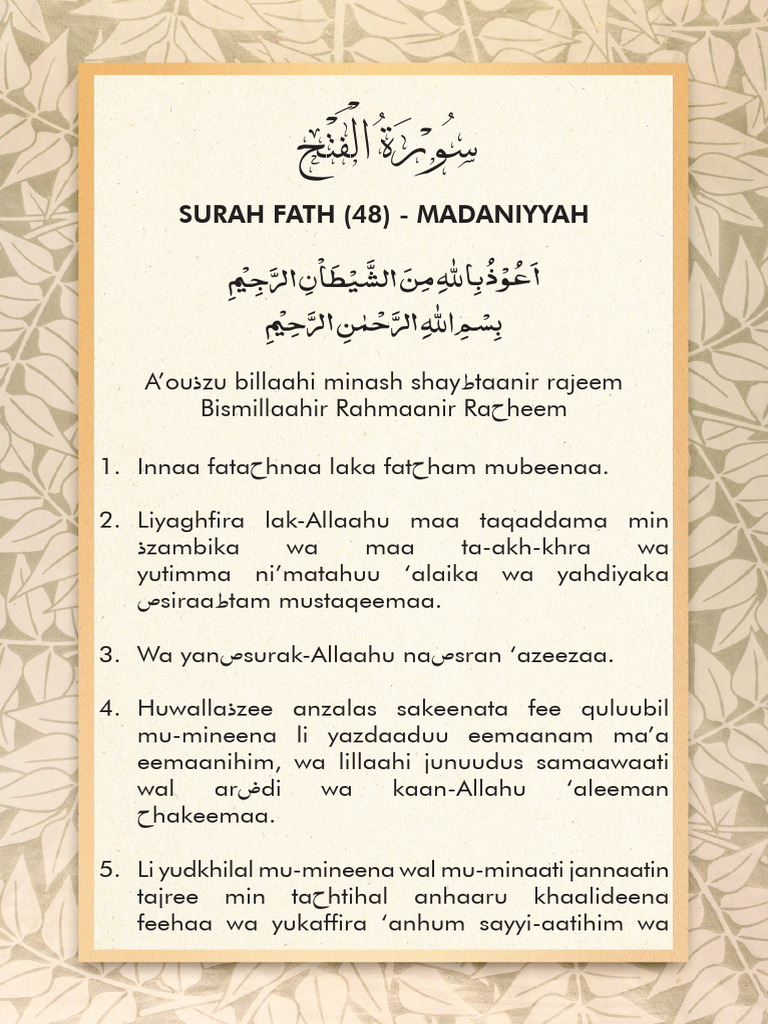 سُوْرَةُ الْفَتْحِ
SURAH FATH (48) - MADANIYYAH
اَعُوْذُ بِاللهِ مِنَ الشَّيْطَاْنِ الرَّجِيْمِ
بِسْمِ اللهِ الرَّحْمٰنِ الرَّحِيْمِ
A’ouذzu billaahi minash shayطtaanir rajeem
Bismillaahir Rahmaanir Raحheem
1. Innaa fataحhnaa laka fatحham mubeenaa.
2. Liyaghfira lak-Allaahu maa taqaddama min
ذzambika wa maa ta-akh-khra wa
yutimma ni’matahuu ‘alaika wa yahdiyaka
صsiraaطtam mustaqeemaa.
3. Wa yanصsurak-Allaahu naصsran ‘azeezaa.
4. Huwallaذzee anzalas sakeenata fee quluubil
mu-mineena li yazdaaduu eemaanam ma’a
eemaanihim, wa lillaahi junuudus samaawaati
wal arضdi wa kaan-Allahu ‘aleeman
حhakeemaa.
5. Li yudkhilal mu-mineena wal mu-minaati jannaatin
tajree min taحhtihal anhaaru khaalideena
feehaa wa yukaffira ‘anhum sayyi-aatihim wa